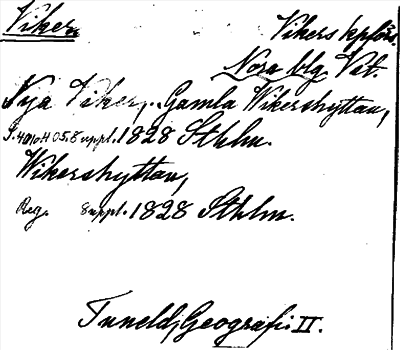 Viker Vikers kpförs.
Nora blg. Vstm.
Nya Viker, Gamla Wikershyttan,
S. 404 o 405. 8 uppl. 1828 Sthlm.
Wikershyttan,
Reg. 8 uppl. 1828 Sthlm.
Tuneld, Geografi II.